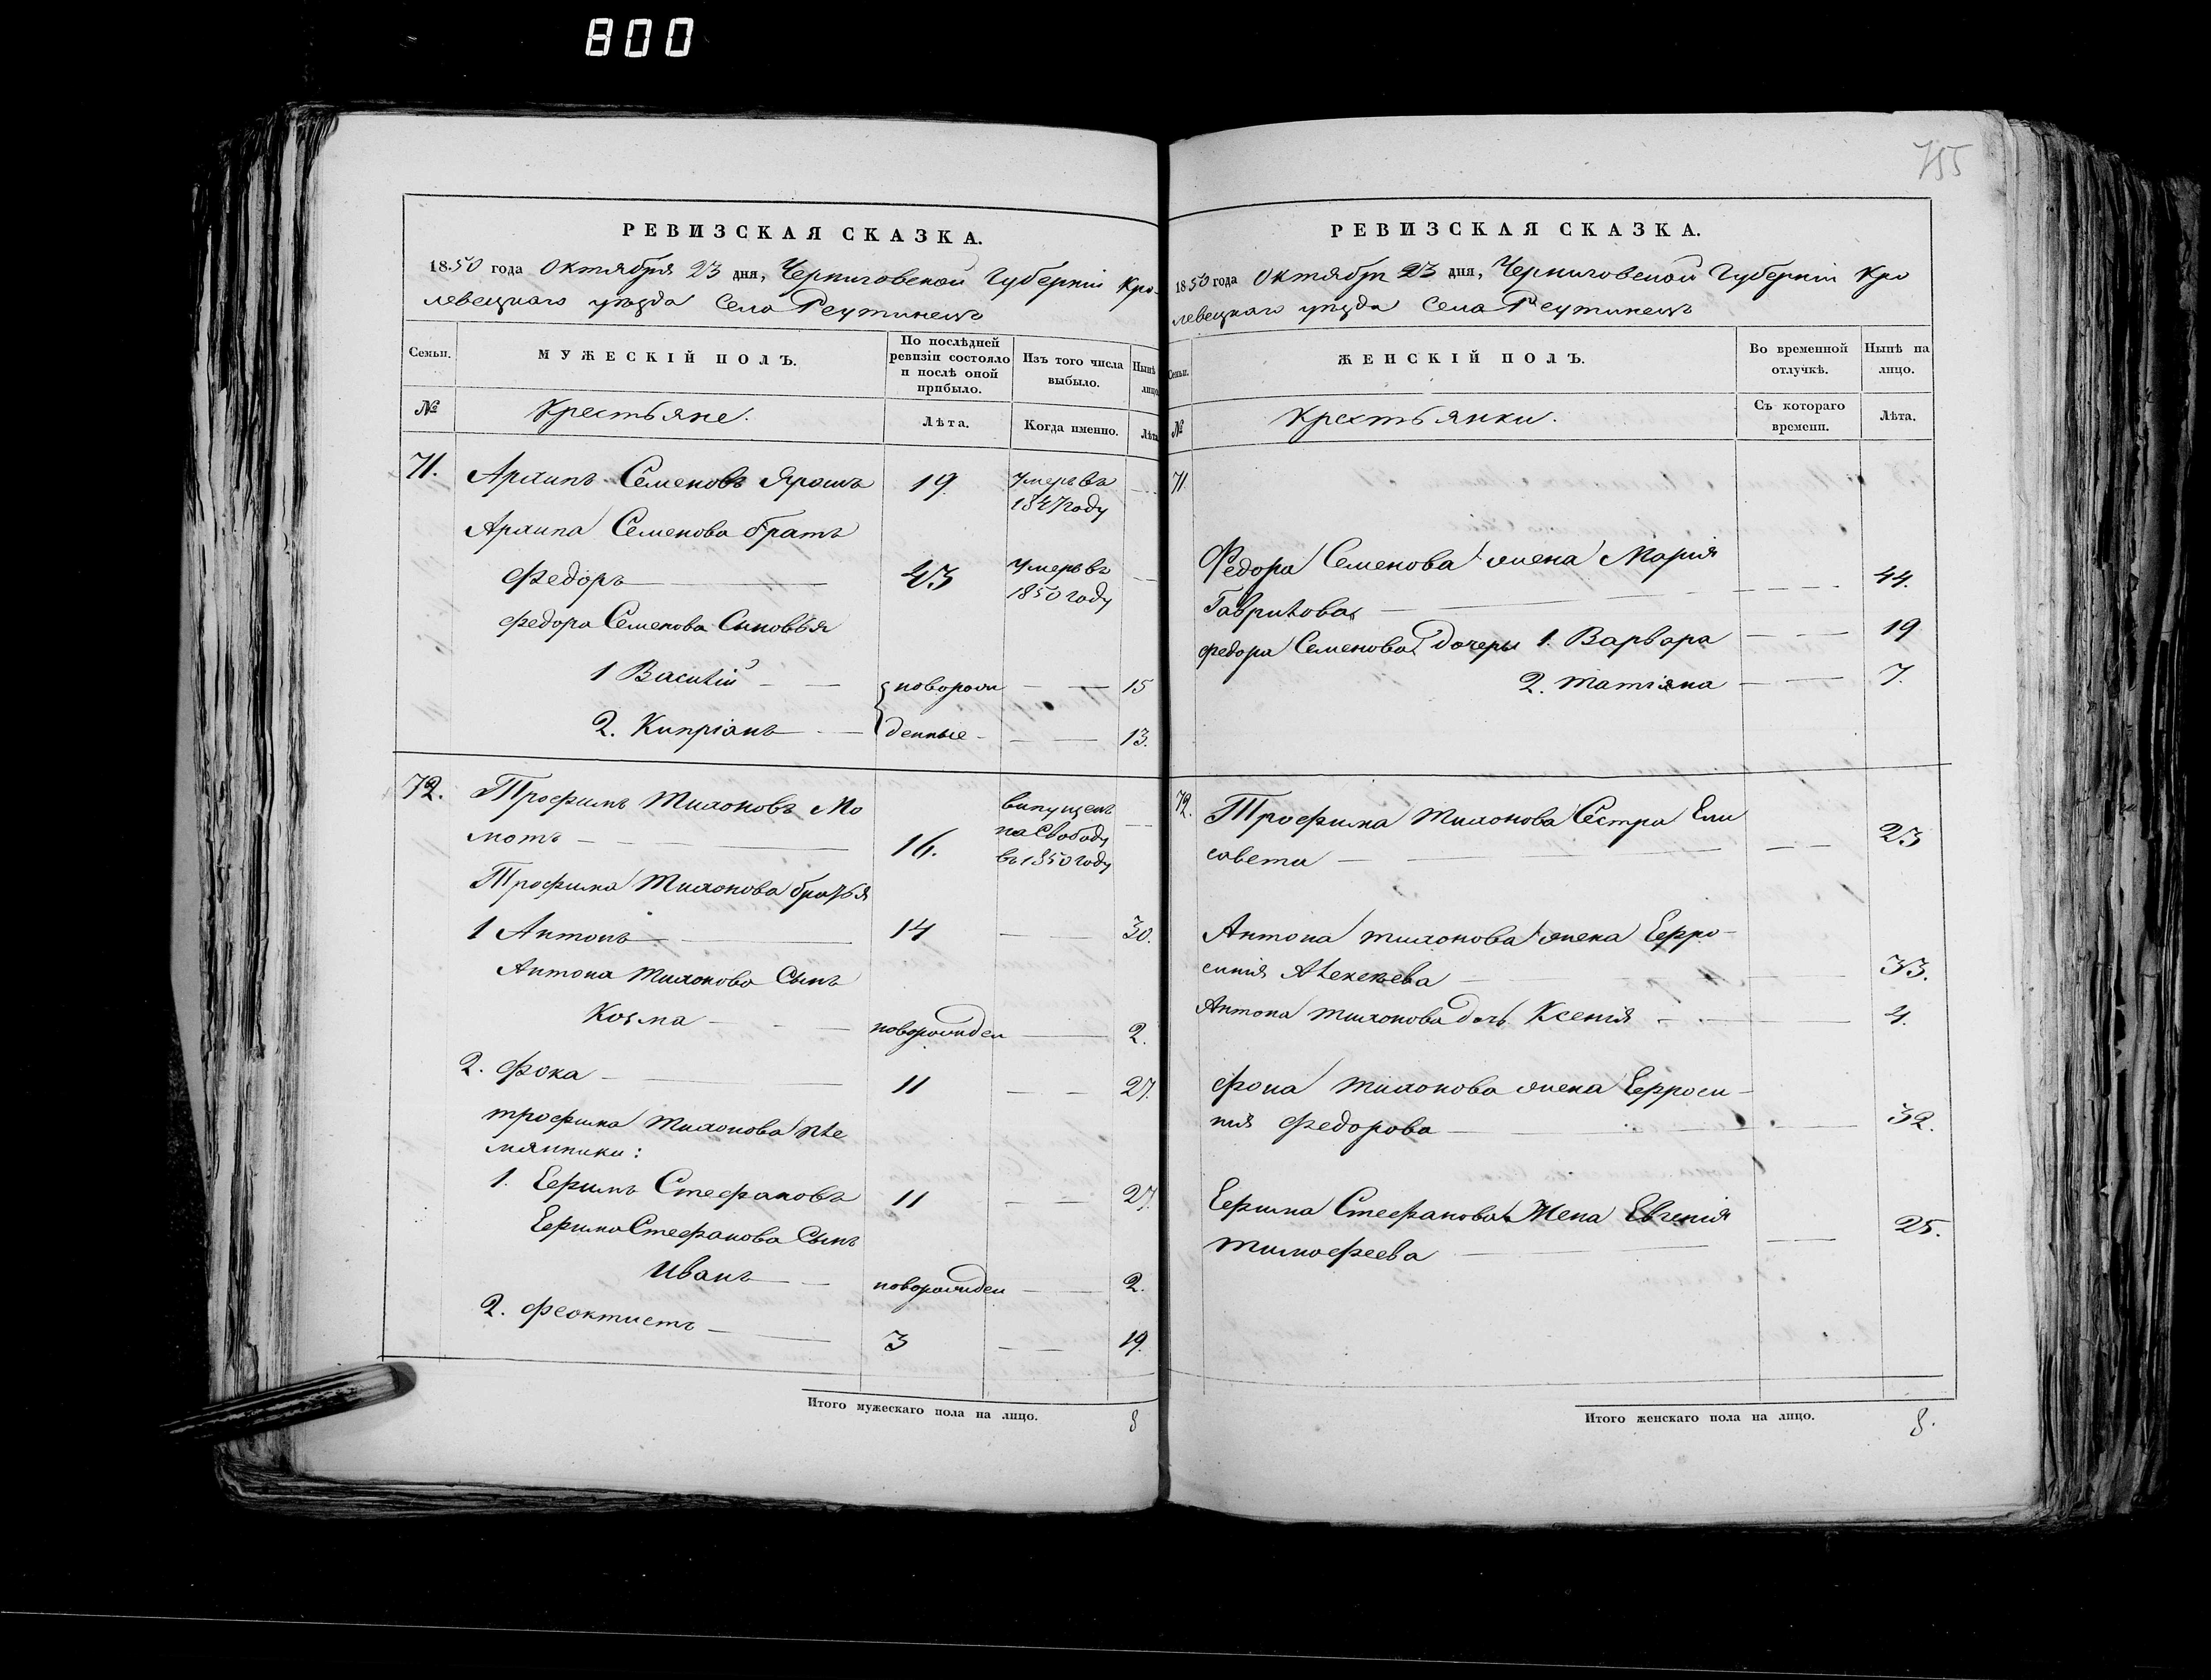 800
РЕВИЗСКАЯ СКАЗКА.
1850 года Октября 23 дня, Черниговской Губерніи Кро-
левецкаго уѣзда Села Реутинецъ
Семьи. МУЖЕСКІЙ ПОЛЪ. По послѣдней ревизіи состояло и послѣ оной прибыло. Изъ того числа выбыло. Нынѣ лицо
№ Крестьяне. Лѣта. Когда именно. Лѣта
71. Архипъ Семеновъ Ярошъ 19. умеръ въ
1847 году
Архипа Семенова братъ
Федоръ 43 умеръ въ
1850 году
Федора Семенова Синовья
1 Василій новорож 15
2. Кипріанъ денные 13.
72. Трофимъ Тихоновъ Мо
мотъ 16. випущенъ
на Свободу
въ 1850 году
Трофима Тихонова братья
1 Антонъ 14 30.
Антона Тихонова Сынъ
Козма новорожден 2.
2. Фока 11 27.
трофима Тихонова пле
мянники:
1. Ефимъ Стефановъ 11 27.
Ефима Стефанова Сынъ
Иванъ новорожден 2.
2. Феоктистъ 3 19.
Итого мужескаго пола на лицо. 8
755
РЕВИЗСКАЯ СКАЗКА.
1850 года Октября 23 дня, Черниговской Губерніи Кро
левецкаго уѣзда Села Реутинецъ
Семьи. ЖЕНСКІЙ ПОЛЪ. Во временной отлучкѣ. Нынѣ на лицо.
№ Крестьянки. Съ котораго времени. Лѣта.
71
Федора Семенова жена Марія
Гаврилова 44.
Федора Семенова дочеры 1. Варвара 19
2. Татіяна 7.
72. Трофима Тихонова Сестра Ели
савета 23
Антона Тихонова жена Ефро-
синія Алексѣева 33.
Антона Тихонова дочь Ксенія 4.
Фока Тихонова жена Ефроси-
нія Федорова 32.
Ефима Стефанова Жена Евгенія
Тимофеева 25.
Итого женскаго пола на лицо. 8.